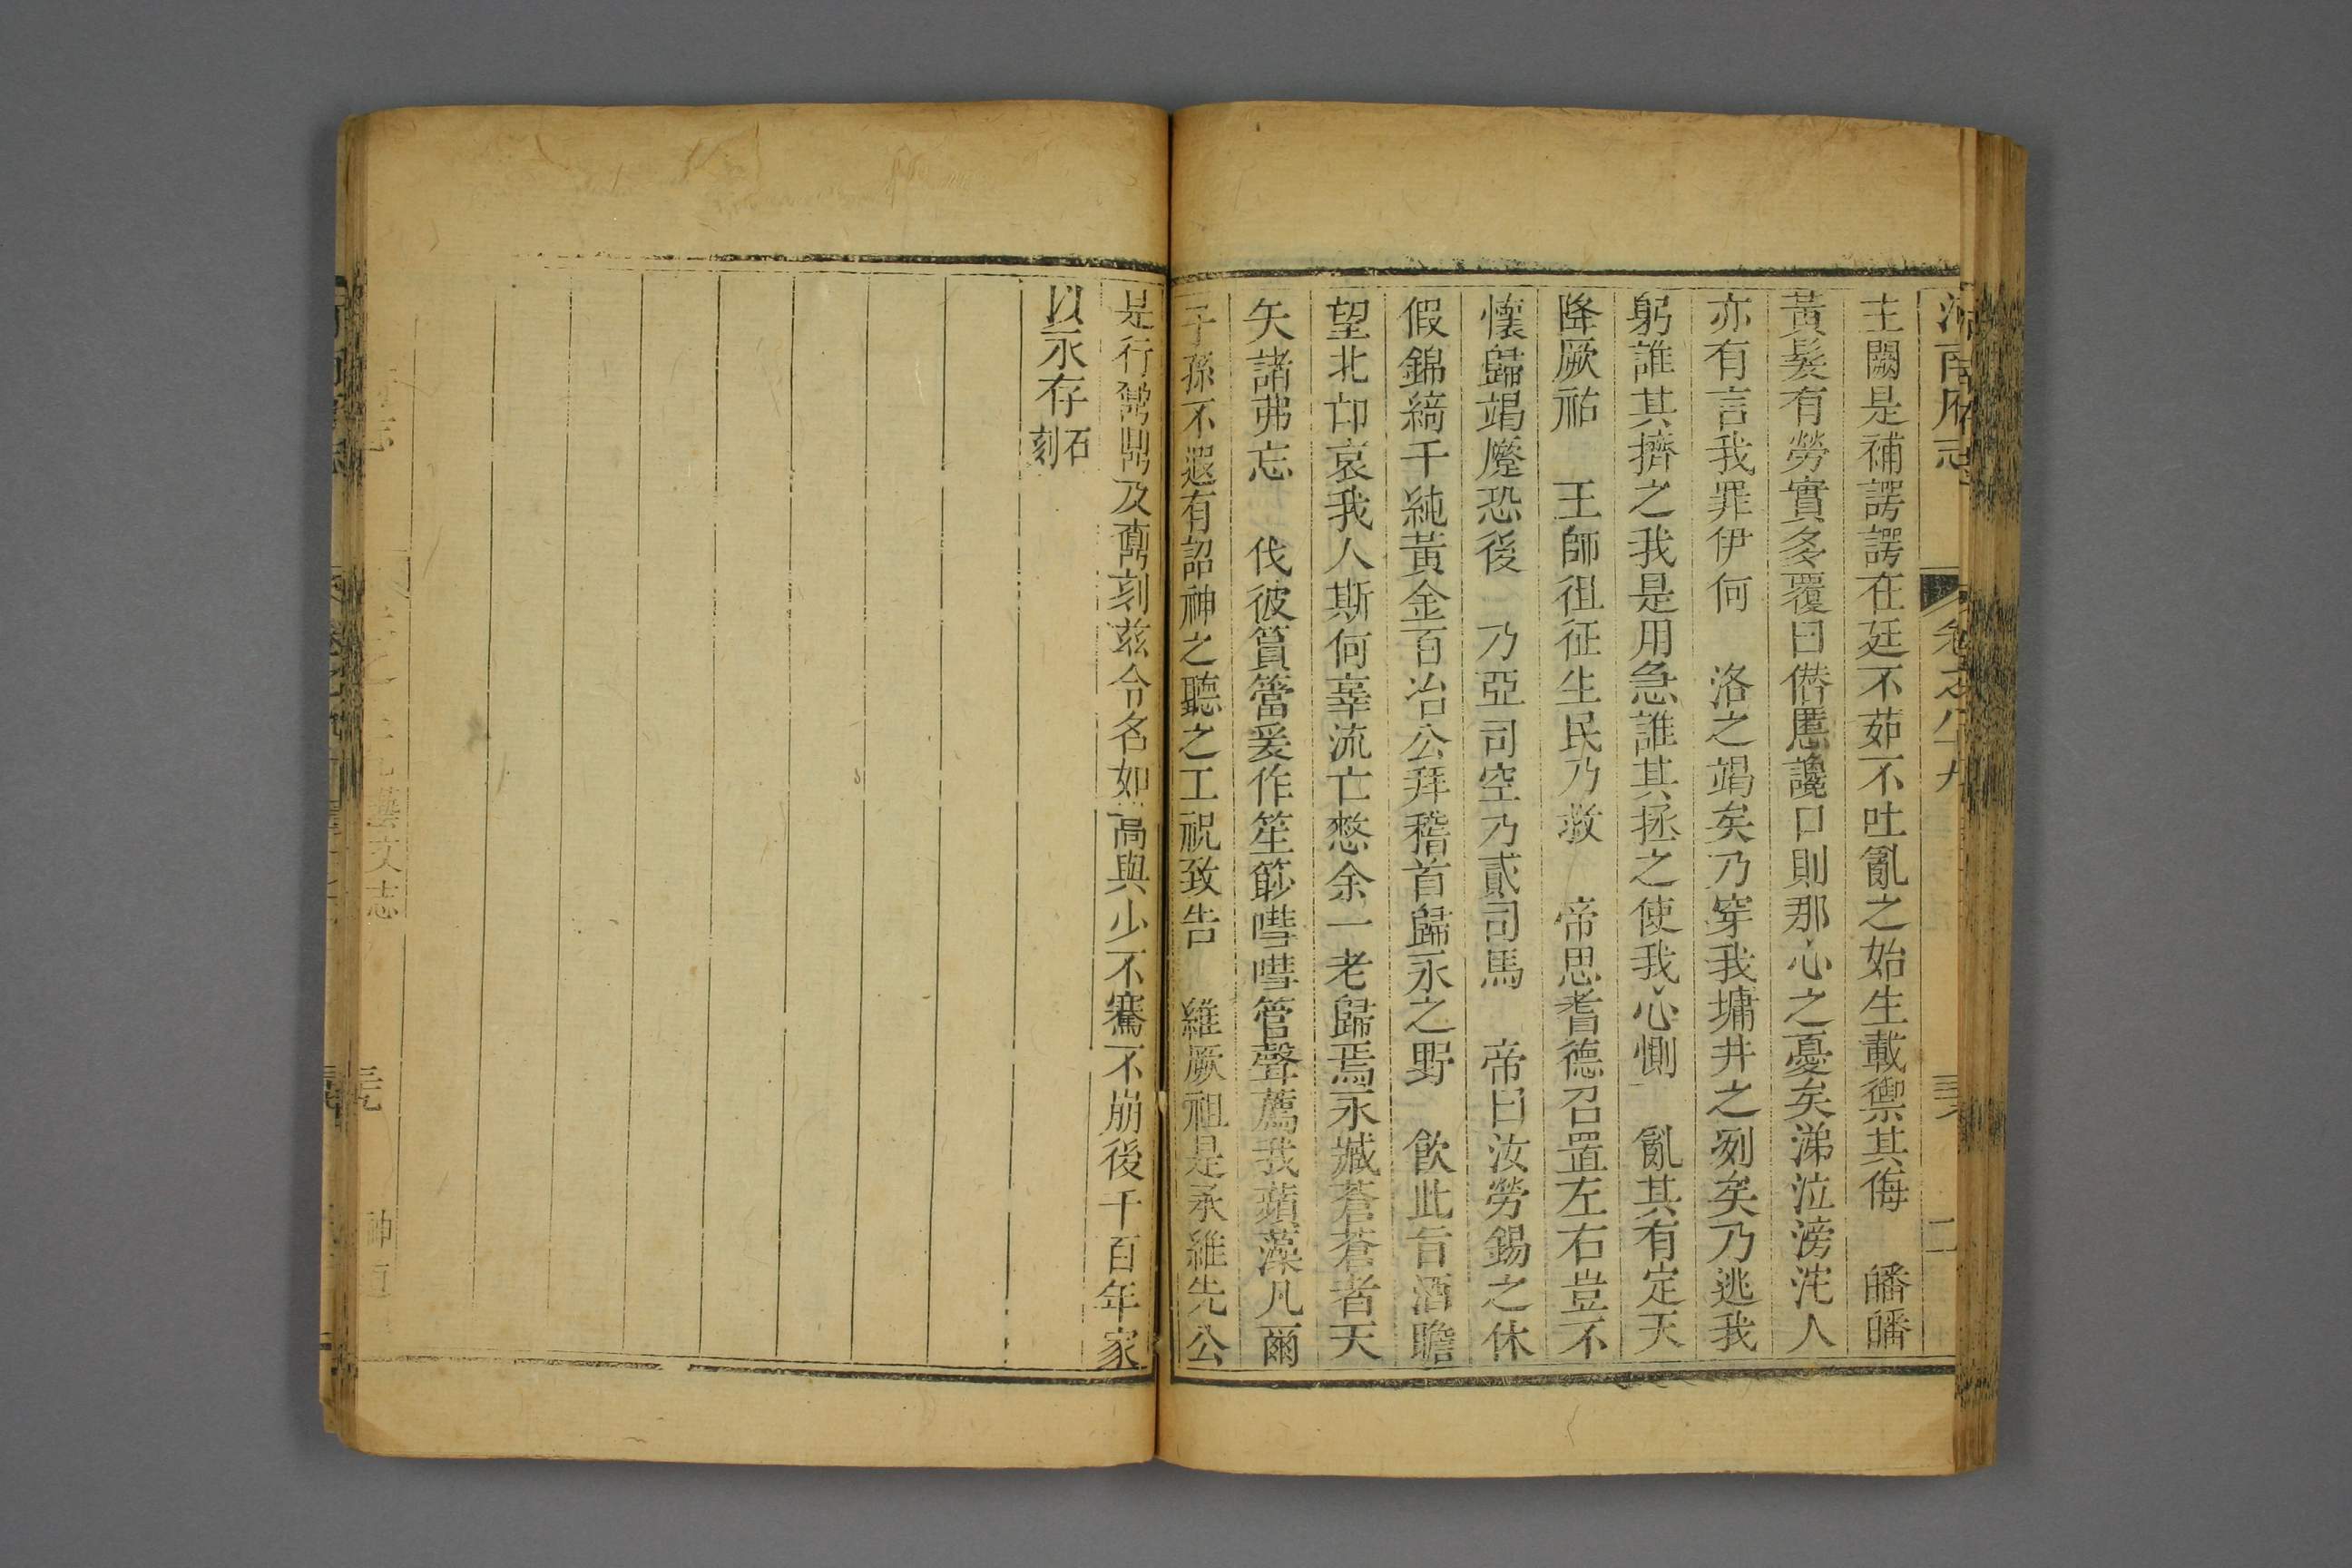 河南府志 卷之八十九
主闕是補諤諤在廷不茹不吐亂之始生載禦其侮 皤皤
黃髮有勞實多覆曰僭慝讒口則那心之憂矣涕泣滂沱人
亦有言我罪伊何 洛之竭矣乃穿我墉井之冽矣乃逃我
躬誰其擠之我是用急誰其拯之使我心惻 亂其有定天
降厥祐 王師徂征生民乃救 帝思耆德召置左右豈不
懷歸竭蹷恐後 乃亞司空乃貳司馬 帝曰汝勞錫之休
假錦綺千純黃金百冶公拜稽首歸永之野 飲此旨酒瞻
望北邙哀我人斯何辜流亡憖余一老歸焉永臧蒼蒼者天
矢諸弗忘 伐彼篔簹爰作笙䈰嘒嘒管聲薦我蘋藻凡爾
子孫不遐有詔神之聽之工祝致告 維厥祖是承維先公
是行鬻鼎及鬵刻茲令名如高與少不騫不崩後千百年家
以永存石刻
藝文志